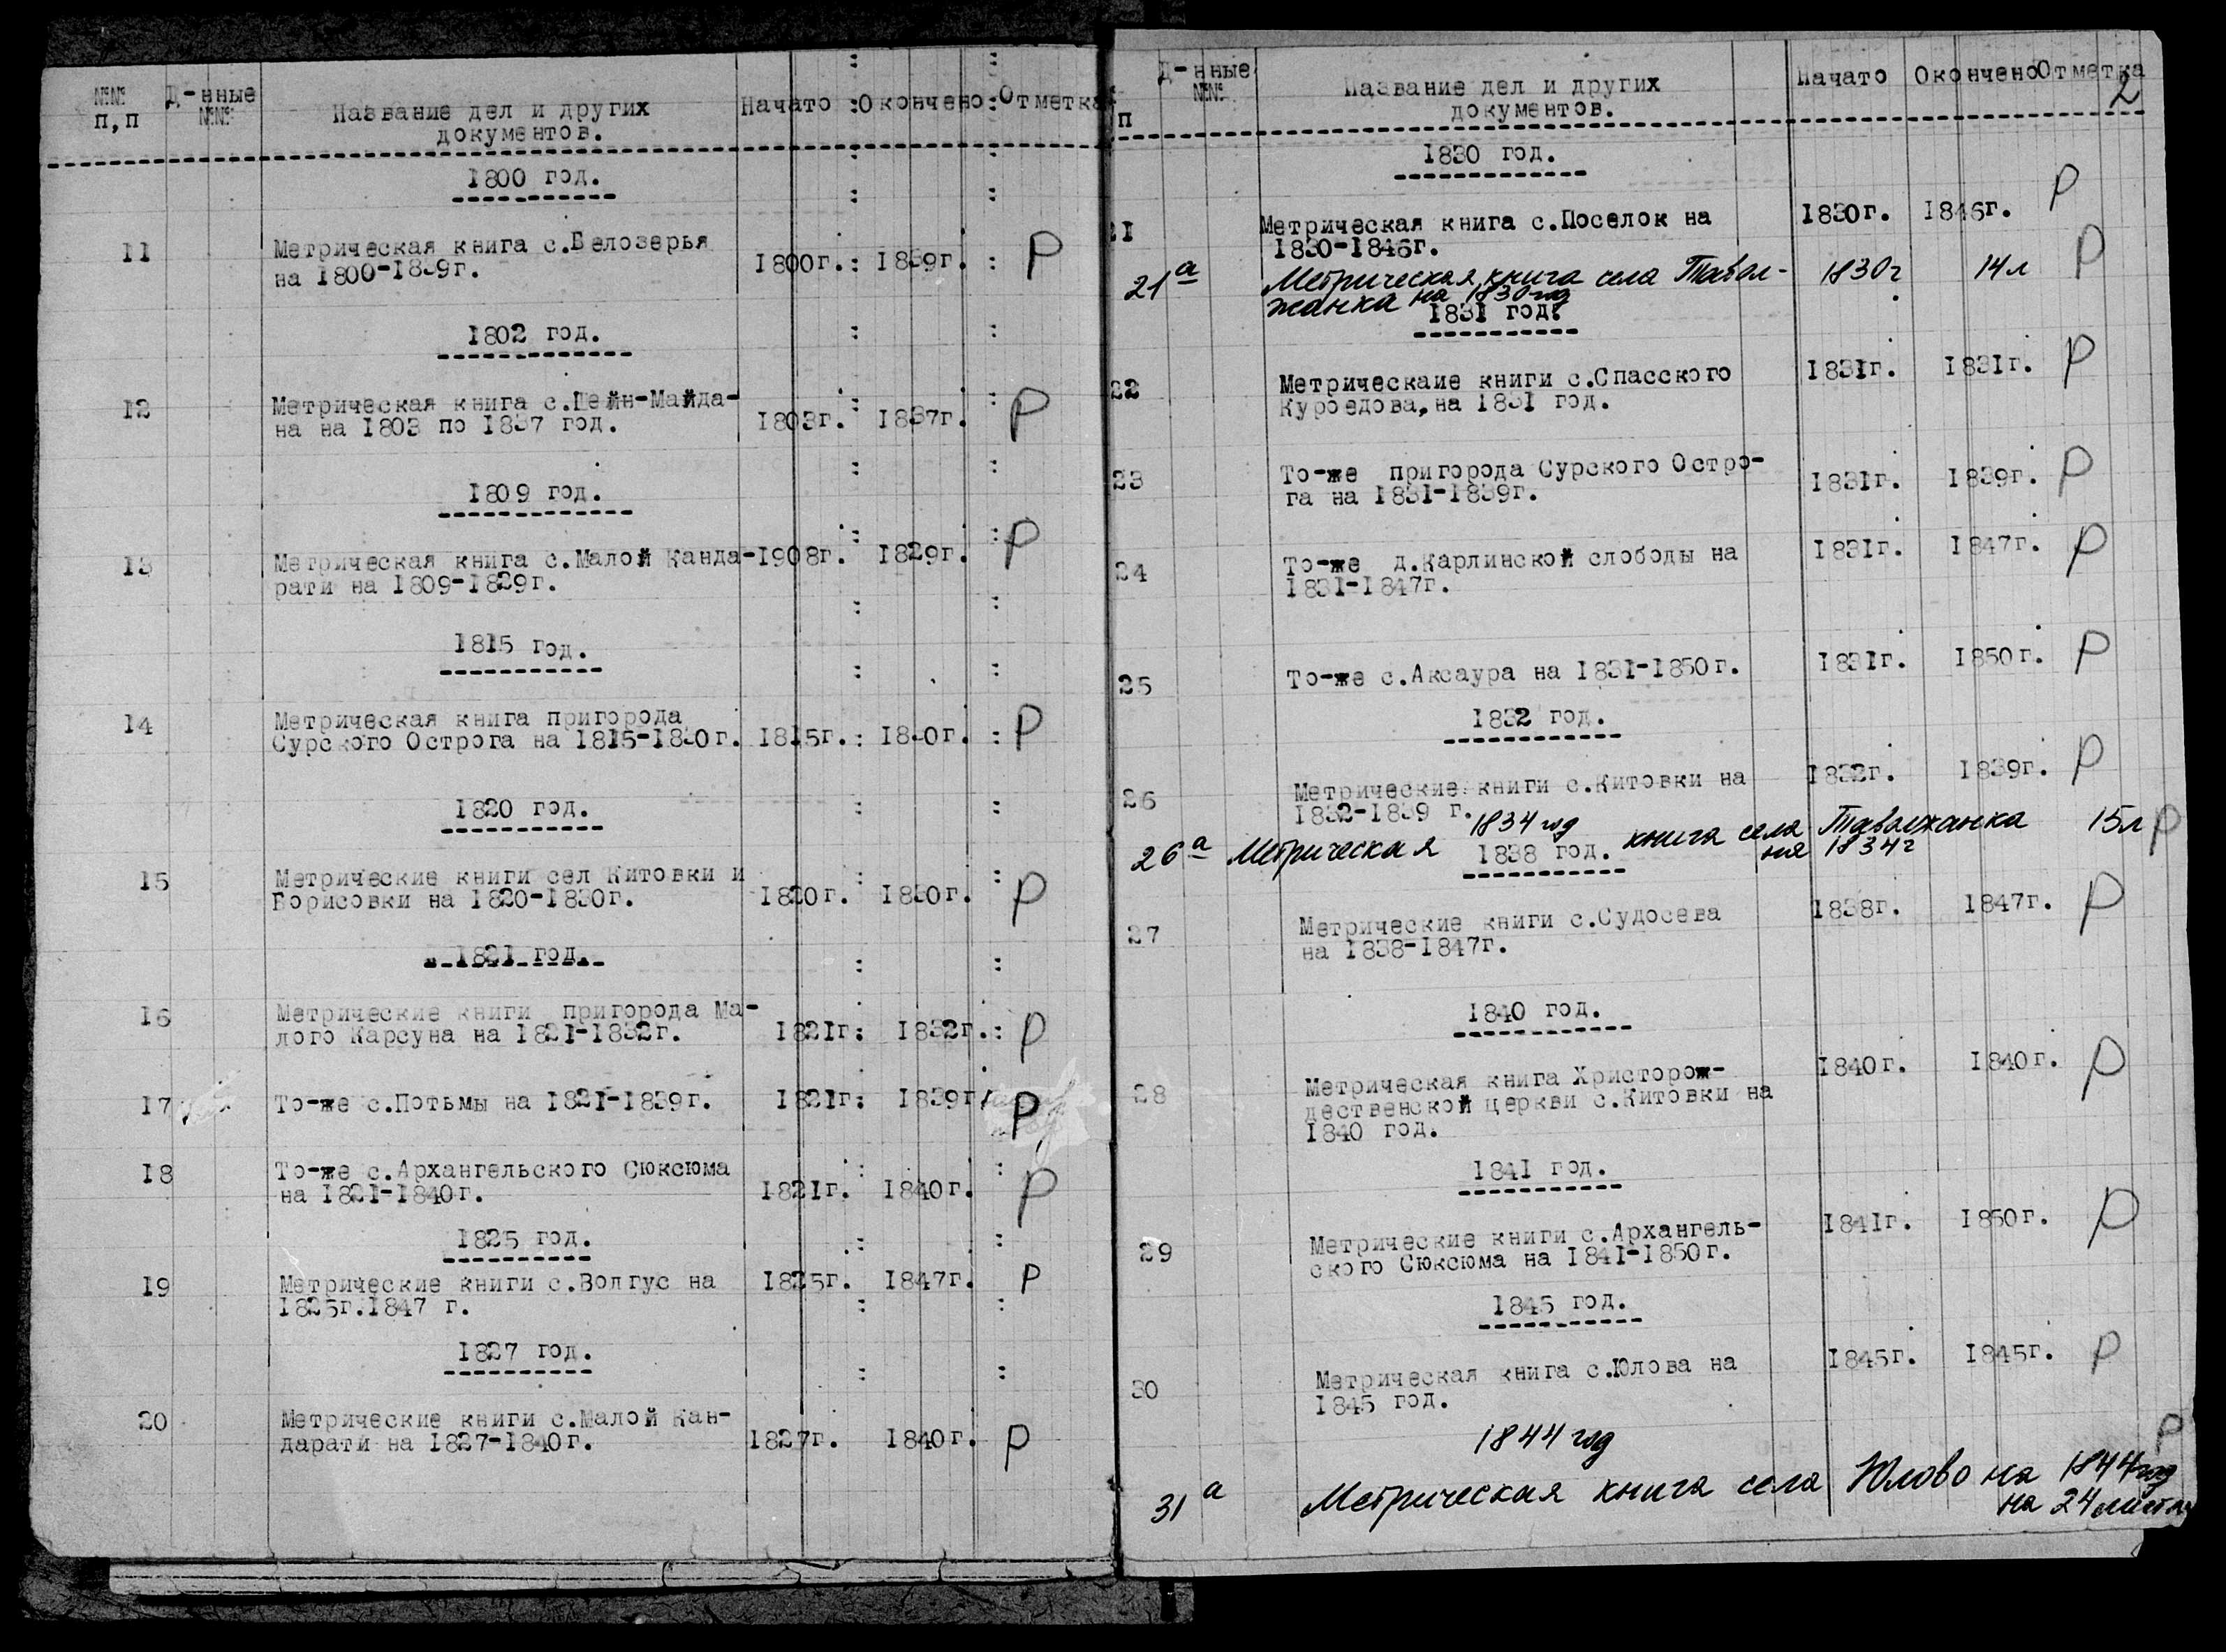 №№ Д-нные Название дел и других Начато :Окончено:Отметка
п,п №№ документов.
1800 год.
11 Метрическая книга с.Белозерья
на 1800-1839г. 1800г.: 1839г. : Р
1802 год.
12 Метрическая книга с.Пейн-Майда-
на на 1803 по 1837 год. 1803г. 1837г. Р
1809 год.
13 Метрическая книга с.Малой Канда- 1908г. 1829г. Р
рати на 1809-1829г.
1815 год.
14 Метрическая книга пригорода
Сурского Острога на 1815-1830г. 1815г.: 18-0г. : Р
1820 год.
15 Метрические книги сел Китовки и
Борисовки на 1820-1830г. 1820г. 1830г. Р
1821 год.
16 Метрические книги пригорода Ма-
лого Карсуна на 1821-1832г. 1821г: 1832г.: Р
17 То-же с.Потьмы на 1821-1839г. 1821г: 1839г Р
18 То-же с.Архангельского Сюксюма
на 1821-1840г. 1821г. 1840г. Р
1825 год.
19 Метрические книги с.Волгус на 1825г. 1847г. Р
1825г.1847 г.
1827 год.
20 Метрические книги с.Малой Кан-
дарати на 1827-1840г. 1827г. 1840г. Р
Д-нные Название дел и других Начато Окончено Отметка
п №№ документов. 2
1830 год.
21 Метрическая книга с.Поселок на 1830г. 1846г. Р
1830-1846г.
21а Метрическая книга села Тавол- 1830г 14л Р
жанка на 1830 год
1831 год.
22 Метрическаие книги с.Спасского 1831г. 1831г. Р
Куроедова,на 1831 год.
23 То-же пригорода Сурского Остро- 1831г. 1839г. Р
га на 1831-1839г.
24 То-же д.Карлинской слободы на 1831г. 1847г. Р
1831-1847г.
25 То-же с.Аксаура на 1831-1850г. 1831г. 1850г. Р
1832 год.
26 Метрические книги с.Китовки на 1832г. 1839г. Р
1832-1839 г.
1834 год
26а Метрическая книга села Таволжанка 15л Р
на 1834г
1838 год.
27 Метрические книги с.Судосева 1838г. 1847г. Р
на 1838-1847г.
1840 год.
28 Метрическая книга Христорож- 1840г. 1840г. Р
дественской церкви с.Китовки на
1840 год.
1841 год.
29 Метрические книги с.Архангель- 1841г. 1850г. Р
ского Сюксюма на 1841-1850г.
1845 год.
30 Метрическая книга с.Юлова на 1845г. 1845г. Р
1845 год.
1844 год Р
31а Метрическая книга села Юлово на 1844 год
на 24 листах